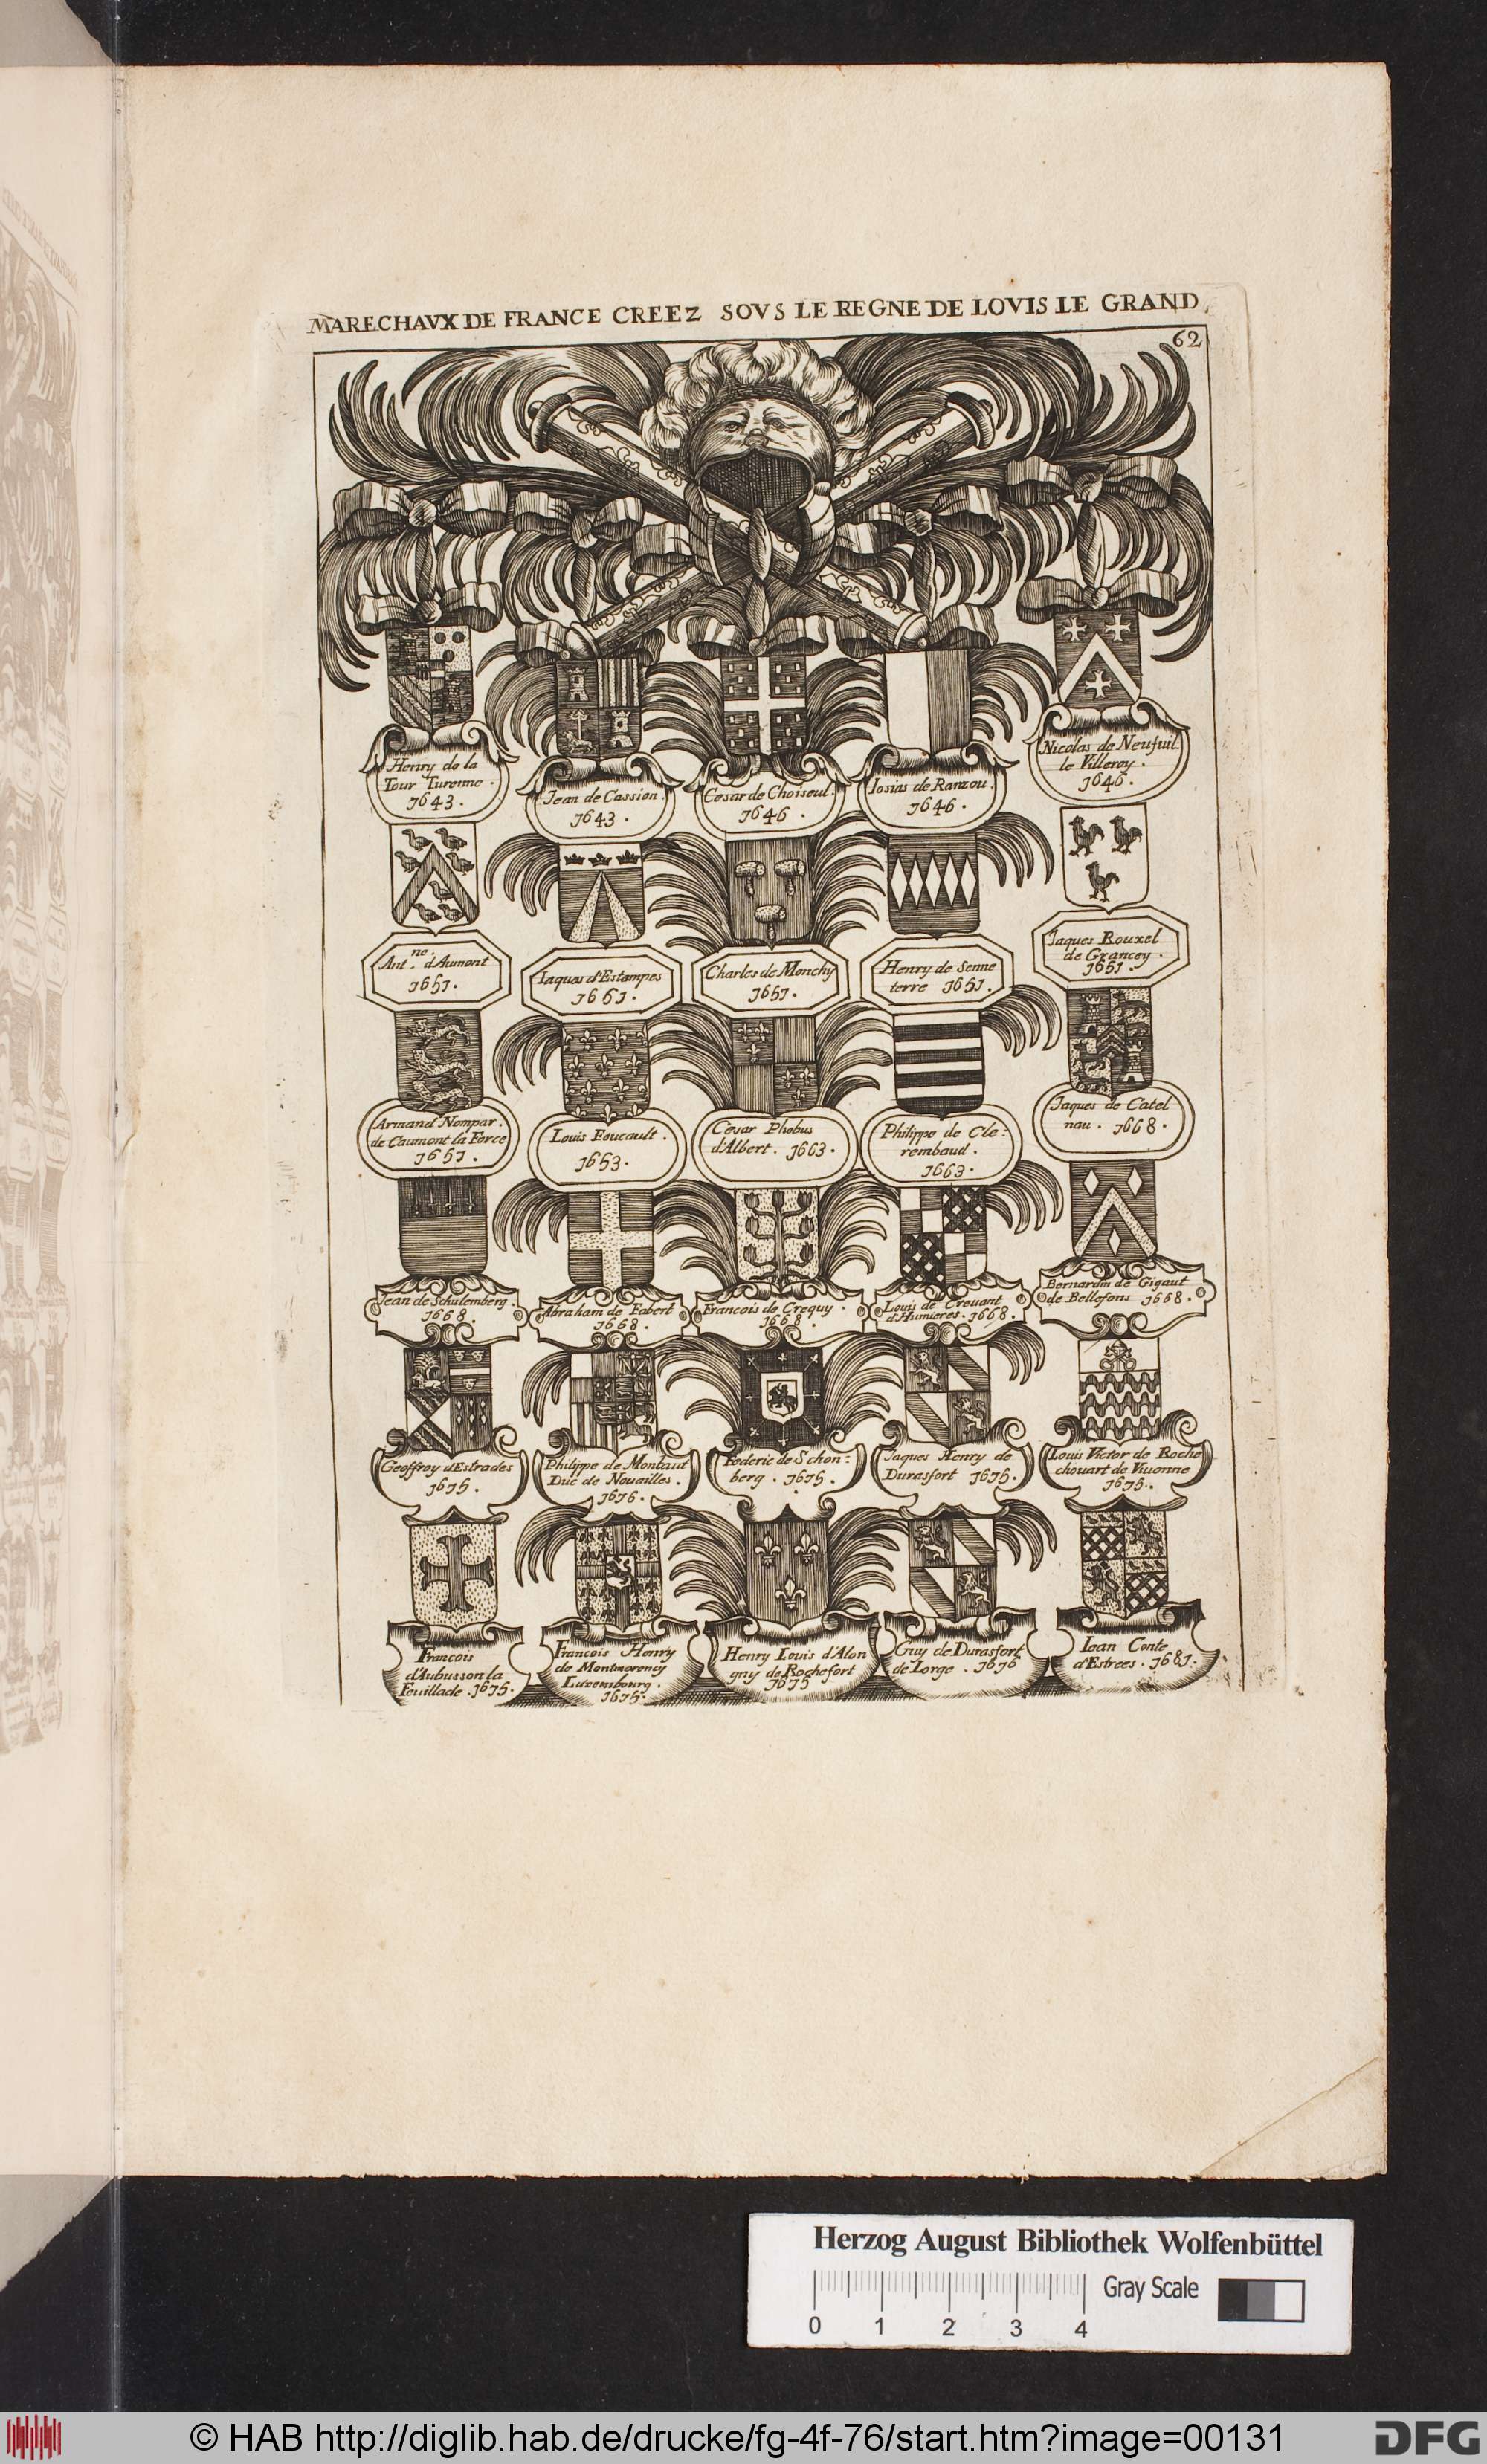 MARECHAVX DE FRANCE CREEZ SOVS LE REGNE DE LOVIS LE GRAND.
62
Henry de la
Tour Turenne.
1643.
Jean de Cassion.
1643.
Cesar de Choiseul.
1646.
Iosias de Ranzou.
1646.
Nicolas de Neufuil
le Villeroy.
1646.
Ant.ne d'Aumont
1651.
Iaques d'Estampes
1651.
Charles de Monchy
1651.
Henry de Senne
terre 1651.
Jaques Rouxel
de Grancey.
1651.
Armand Nompar.
de Caumont la Force
1651.
Louis Foucault.
1653.
Cesar Phobus
d'Albert. 1663.
Philippe de Cle:
rembaud.
1663.
Jaques de Catel
nau. 1668.
Jean de Schulemberg.
1668.
Abraham de Fabert
1668.
Francois de Crequy.
1668.
Louis de Creuant
d'Humieres. 1668.
Bernardin de Gigaut
de Bellefons 1668.
Geoffroy d'Estrades
1675.
Philippe de Montaut
Duc de Nouailles.
1676.
Frederic de Schon:
berg. 1675.
Jaques Henry de
Durasfort 1675.
Louis Victor de Roche
chouart de Viuonne
1675.
Francois
d'Aubusson la
Feuillade. 1675.
Francois Henry
de Montmorency
Luxembourg.
1675.
Henry Louis d'Alon
gny de Rochefort
1675
Guy de Durasfort
de Lorge. 1676
Iean Conte
d'Estrees. 1681.
Herzog August Bibliothek Wolfenbüttel
Gray Scale
0 1 2 3 4
© HAB http://diglib.hab.de/drucke/fg-4f-76/start.htm?image=00131
DFG